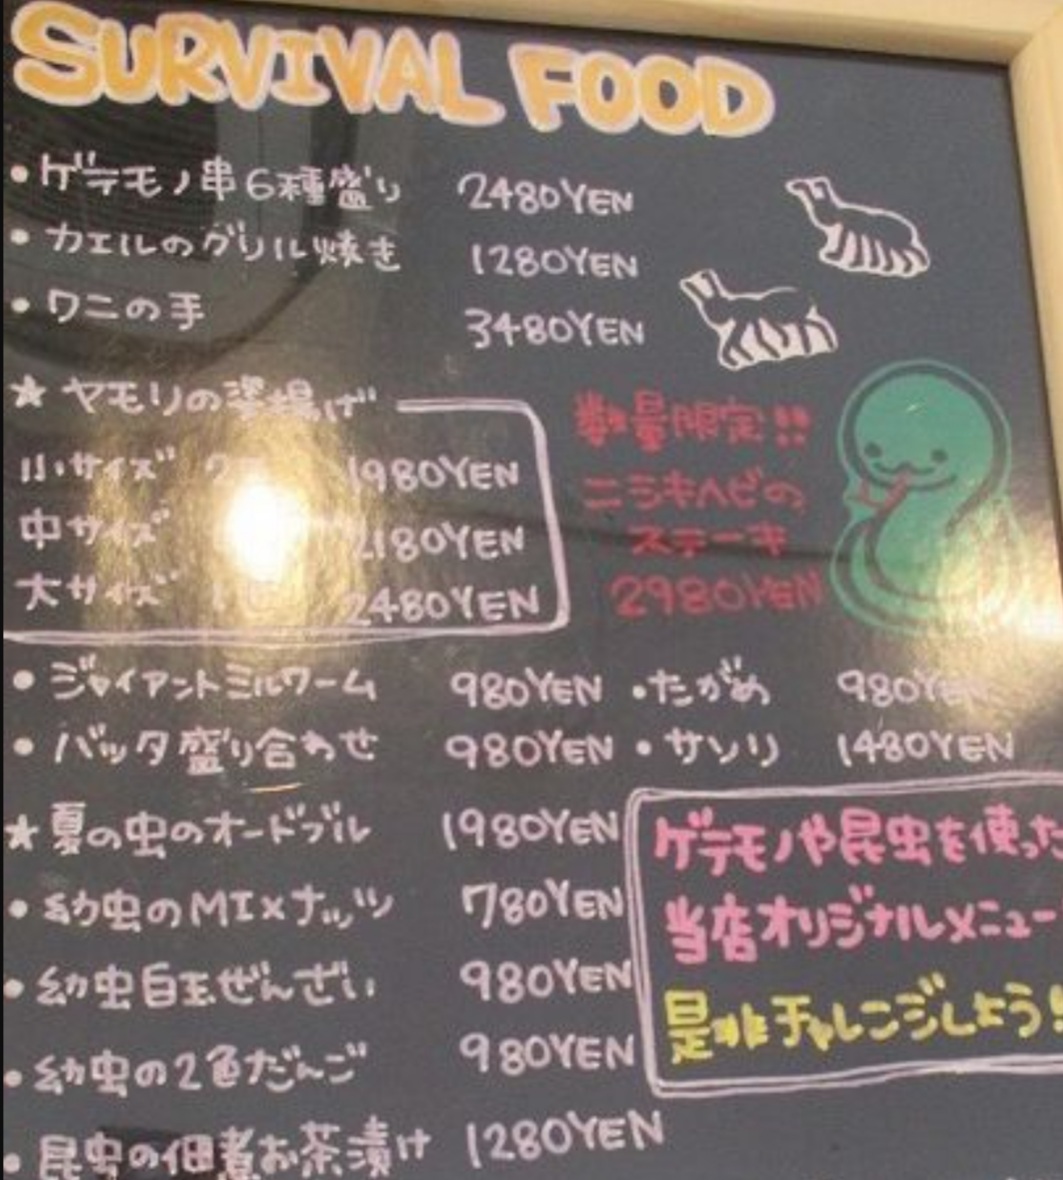 SURVIVAL FOOD
• ゲテモノ串6種盛り 2480YEN
• カエルのグリル焼き 1280YEN
• ワニの手 3480YEN
★ ヤモリの姿揚げ
小サイズ 1980YEN
中サイズ 2180YEN
大サイズ 2480YEN
数量限定!!
ニシキヘビの
ステーキ
2980YEN
• ジャイアントミルワーム 980YEN
• たがめ 980YEN
• バッタ盛り合わせ 980YEN
• サソリ 1480YEN
★ 夏の虫のオードブル 1980YEN
• 幼虫のMIXナッツ 780YEN
• 幼虫白玉ぜんざい 980YEN
• 幼虫の2色だんご 980YEN
• 昆虫の佃煮お茶漬け 1280YEN
ゲテモノや昆虫を使った
当店オリジナルメニュー
是非チャレンジしよう!